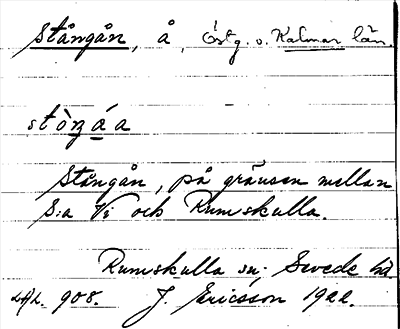 Stångån, å, Östg. o. Kalmar län.
stòŋáa
Stångån, på gränsen mellan
S:a Vi och Rumskulla.
Rumskulla sn; Sevede hd
908. J. Ericsson 1922.